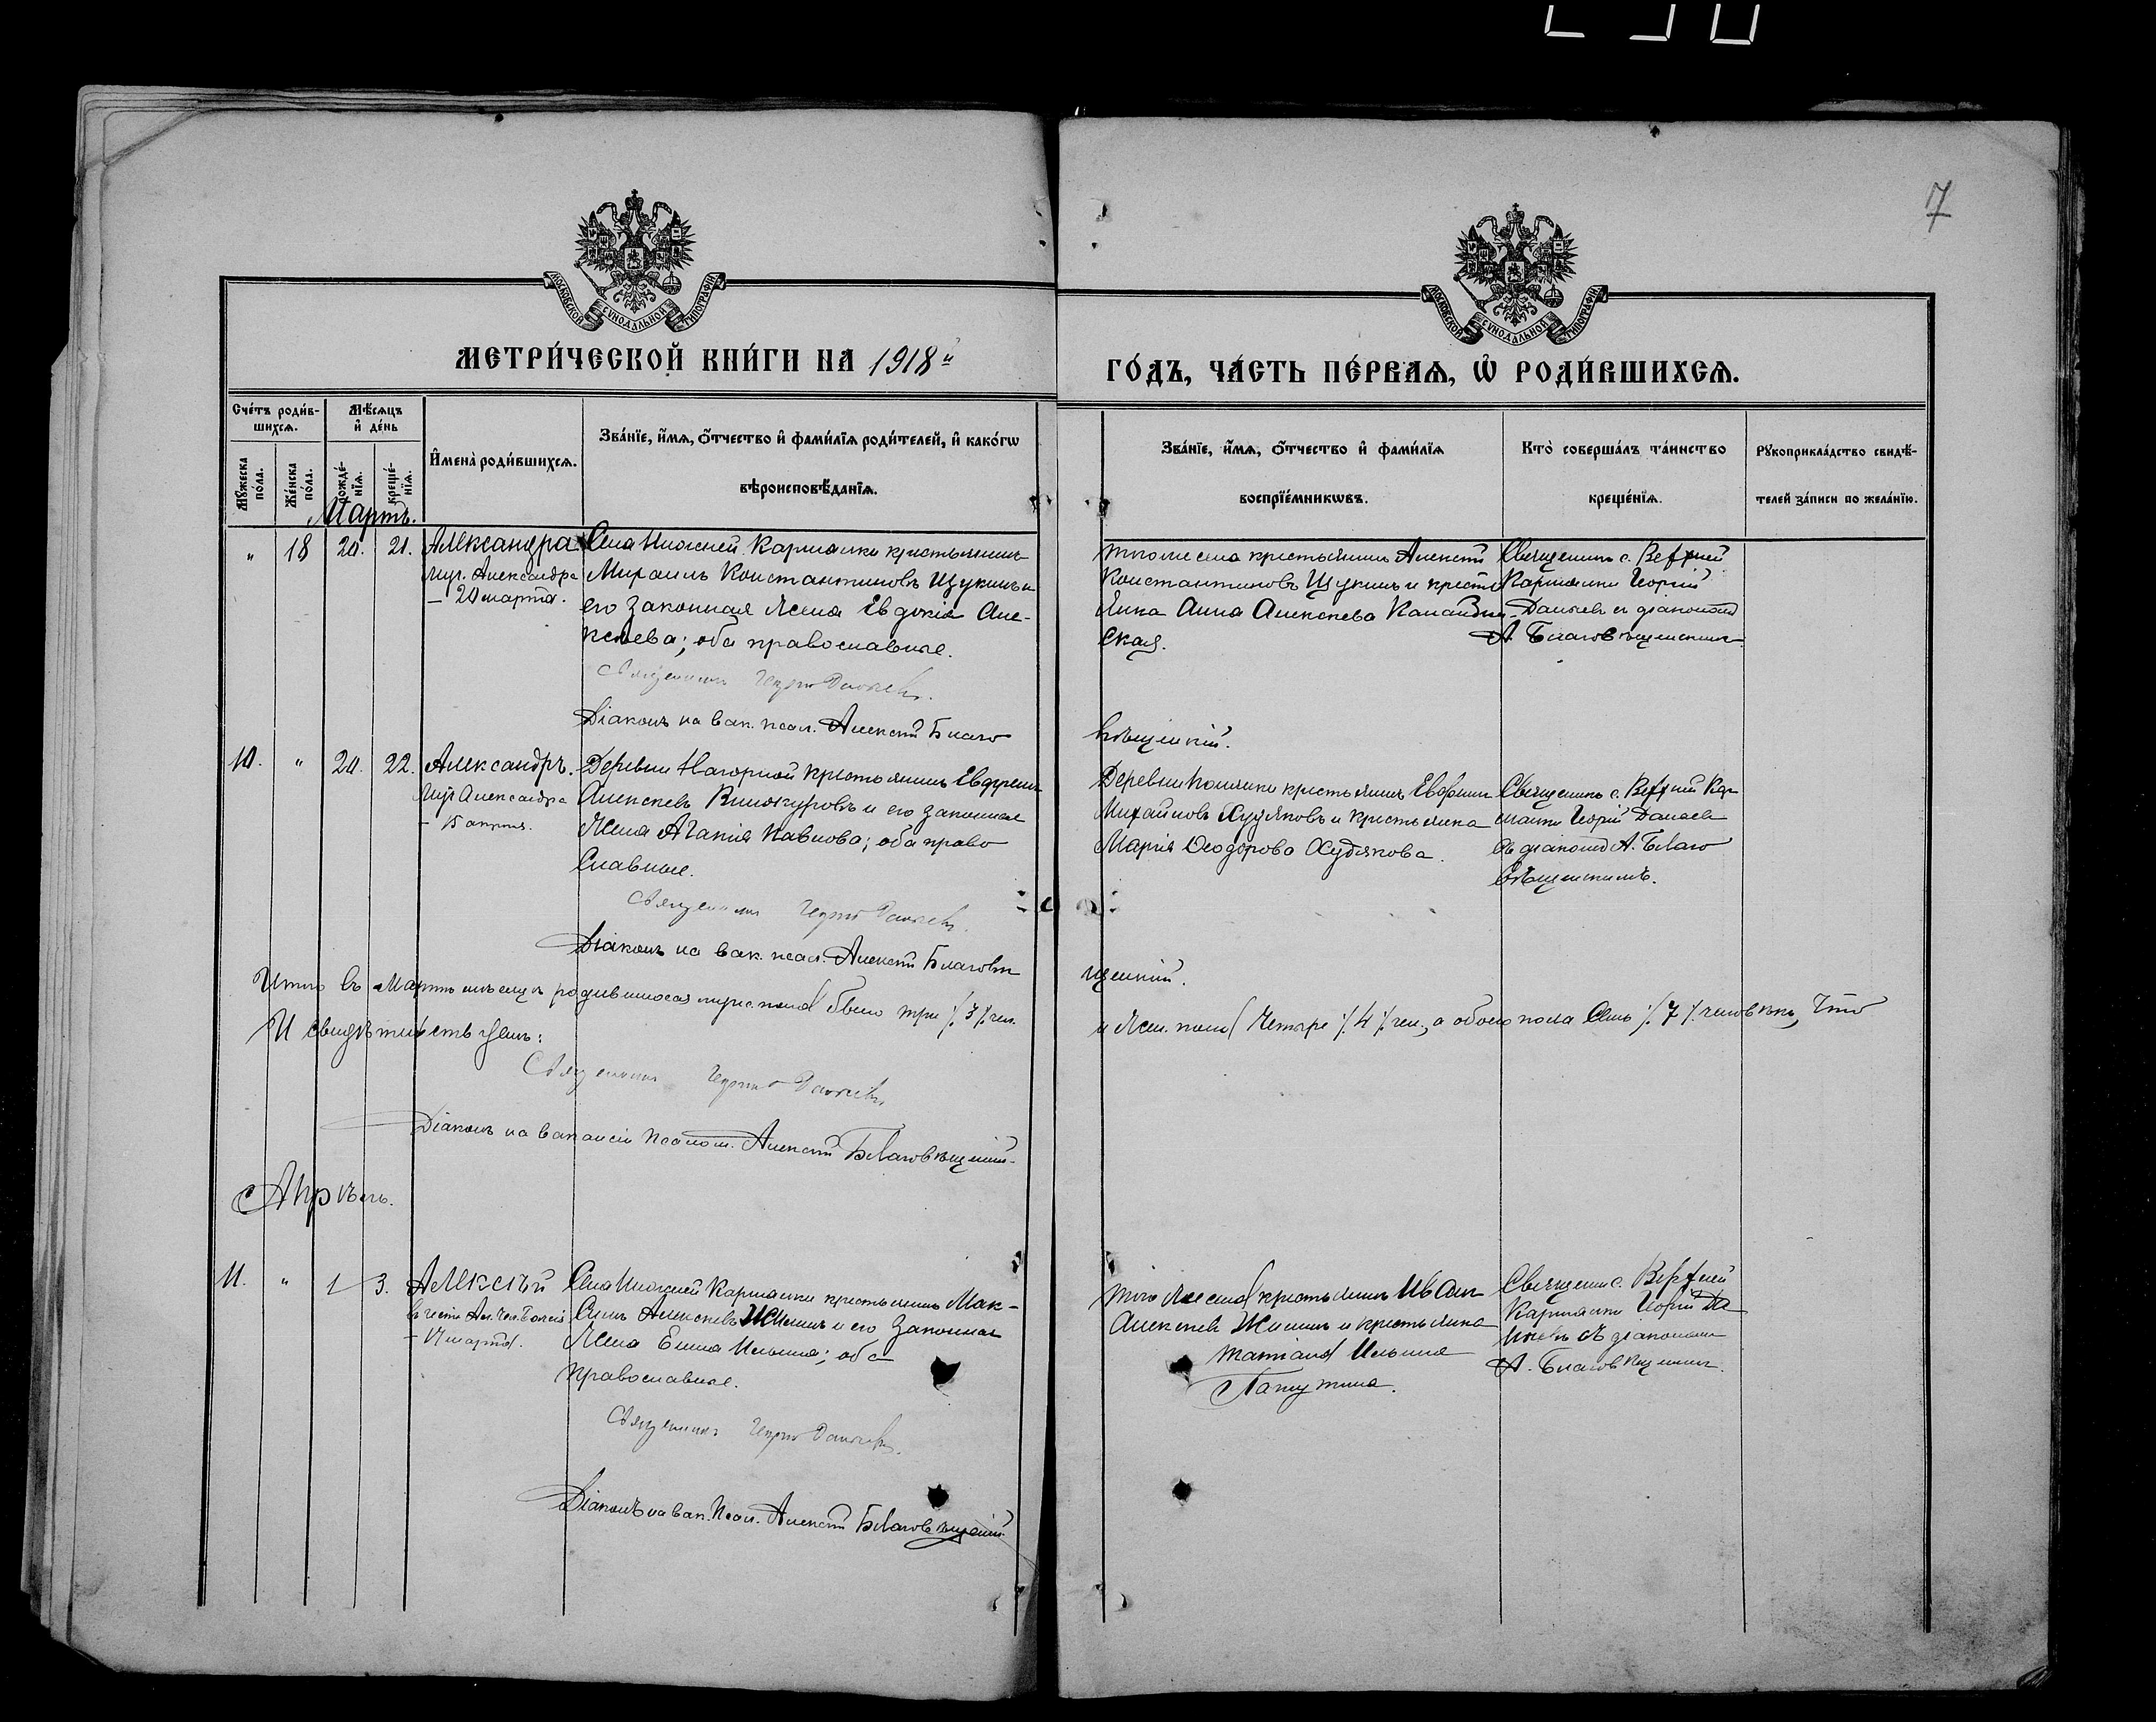 7
МОСКОВСКОЙ СѴНОДАЛЬНОЙ ТИПОГРАФІИ
МОСКОВСКОЙ СѴНОДАЛЬНОЙ ТИПОГРАФІИ
МЕТРИ́ЧЕСКОЙ КНИ́ГИ НА 1918й
ГО́ДЪ, ЧА́СТЬ ПЕ́РВАѦ, Ѡ РОДИ́ВШИХСѦ.
Сче́тъ роди́в-
шихсѧ.
Мѣ́сѧцъ
и҆ де́нь
Мꙋ́жеска
по́ла.
Же́нска
по́ла.
рожде́-
нїѧ.
креще́-
нїѧ.
И҆мена̀ роди́вшихсѧ.
Зва́нїе, и҆́мѧ, ѻ҆́тчество и҆ фами́лїѧ роди́телей, и҆ како́гѡ
вѣроисповѣ́данїѧ.
Зва́нїе, и҆́мѧ, ѻ҆́тчество и҆ фами́лїѧ
воспрїе́мникѡвъ.
Кто̀ соверша́лъ та́инство
креще́нїѧ.
Рꙋкоприкла́дство свидѣ́-
телей за́писи по жела́нїю.
Мартъ.
" 18 20. 21. Александра
Муч. Александра
– 20 марта.
Села Нижней Кармалки крестьянинъ
Михаилъ Константиновъ Щукинъ и
его законная жена Евдокія Але-
ксѣева; оба православные.
Священникъ Георгій Данаевъ.
Діаконъ на вак. псал. Алексѣй Благо
вѣщенскій.
того же села крестьянинъ Алексѣй
Константиновъ Щукинъ и кресть
янка Анна Алексѣева
ская.
Священникъ с. Верхней
Кармалки Георгій
Данаевъ съ діакономъ
А. Благовѣщенскимъ.
10. " 20. 22. Александръ.
Муч Александра
– 15 марта.
Деревни Нагорной крестьянинъ Евфремъ
Алексѣевъ Винокуровъ и его законная
жена Агапія Павлова; оба право
славные.
Священникъ Георгій Данаевъ.
Діаконъ на вак. псал. Алексѣй Благовѣ
щенскій.
Деревни крестьянинъ
Михайловъ Худяковъ и крестьянка
Марія Ѳеодорова Худякова.
Священникъ с. Верхней Кар
малки Георгій Данаевъ
съ діакономъ А. Благо
вѣщенскимъ.
Итого въ Мартѣ мѣсяцѣ родившихся муж. пола было три /. 3 /. чел.
и жен. пола четыре /. 4 /. чел., а обоего пола семь /. 7 /. человѣкъ, что
и свидѣтельствуемъ:
Священникъ Георгій Данаевъ.
Діаконъ на вакансіи псалом. Алексѣй Благовѣщенскій.
Апрѣль.
11. " 1 3. Алексѣй
въ честь Ал. Чел. Божія
– 17 марта.
Села Нижней Кармалки крестьянинъ Мак-
симъ Алексѣевъ Жилинъ и его законная
жена Елена Ильина; оба
православные.
Священникъ Георгій Данаевъ.
Діаконъ на вак. Псал. Алексѣй Благовѣщенскій
того же села крестьянинъ Иванъ
Алексѣевъ Жилинъ и крестьянка
Татіана Ильина
Священникъ с. Верхней
Кармалки Георгій Да-
наевъ съ діакономъ
А. Благовѣщенскимъ.